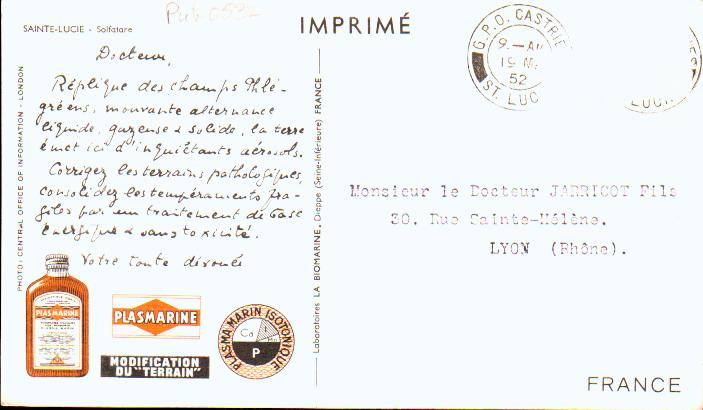 Pub 0532
IMPRIMÉ
SAINTE-LUCIE - Solfatare
Docteur,
Réplique des champs Phlé-
gréens, mouvante alternance
liquide, gazeuse & solide, la terre
émet ici d'inquiétants aérosols.
Corrigez les terrains pathologiques,
consolidez les tempéraments fra-
giles par un traitement de base
énergique & sans toxicité.
Votre toute dévouée
PLASMARINE
PLASMARINE
MODIFICATION
DU "TERRAIN"
PLASMA MARIN ISOTONIQUE
Ca
P
PHOTO: CENTRAL OFFICE OF INFORMATION - LONDON
Laboratoires LA BIOMARINE, Dieppe (Seine-Inférieure) FRANCE
G.P.O. CASTRIE
9 - AM
19 M
52
ST. LUC
LUCI
Monsieur le Docteur JARRICOT Fils
30, Rue Sainte-Hélène.
LYON (Rhône).
FRANCE